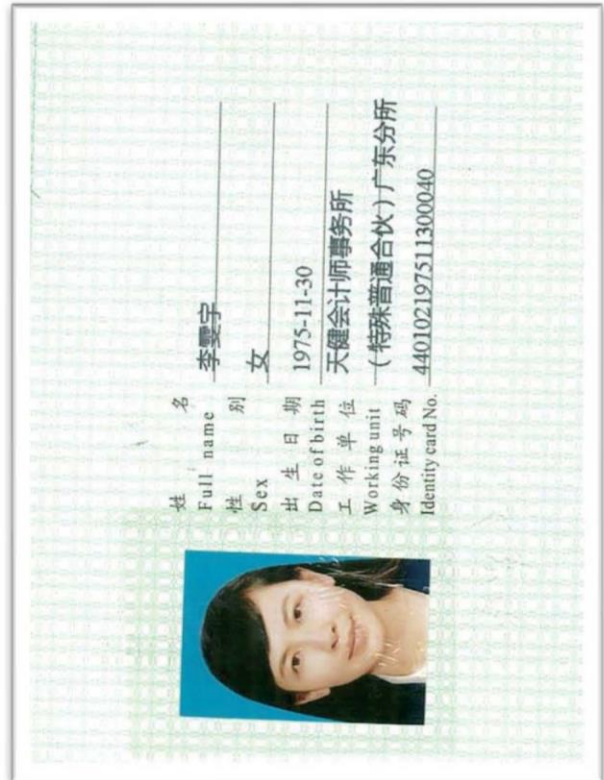 姓 名
Full name 李雯宇
性 别
Sex 女
出 生 日 期
Date of birth 1975-11-30
工 作 单 位 天健会计师事务所
Working unit （特殊普通合伙）广东分所
身 份 证 号 码
Identity card No. 440102197511300040